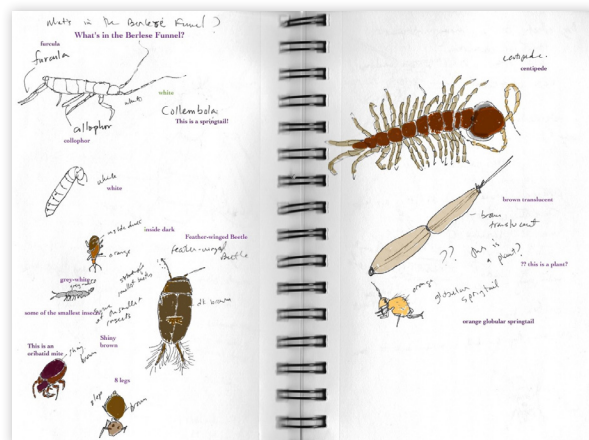 What's in the Berlese Funnel?
What's in the Berlese Funnel?
furcula
furcula
white
white
Collembola
This is a springtail!
collophor
collophor
white
white
inside dark
inside dark
orange
Feather-winged Beetle
feather-winged
Beetle
grey-white
some of the smallest insects
smallest
insects
dk brown
This is an
oribatid mite
Shiny
brown
shiny
brown
8 legs
brown
centipede.
centipede
brown translucent
brown
translucent
?? this is
a plant?
?? this is a plant?
orange
globular
springtail
orange globular springtail